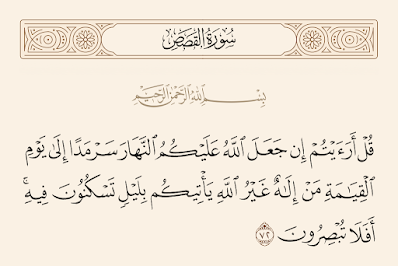 سُورَةُ القَصَصِ
بِسْمِ اللَّهِ الرَّحْمَٰنِ الرَّحِيمِ
قُلْ أَرَءَيْتُمْ إِن جَعَلَ اللَّهُ عَلَيْكُمُ النَّهَارَ سَرْمَدًا إِلَىٰ يَوْمِ
الْقِيَامَةِ مَنْ إِلَٰهٌ غَيْرُ اللَّهِ يَأْتِيكُم بِلَيْلٍ تَسْكُنُونَ فِيهِ ۖ
أَفَلَا تُبْصِرُونَ ٧٢